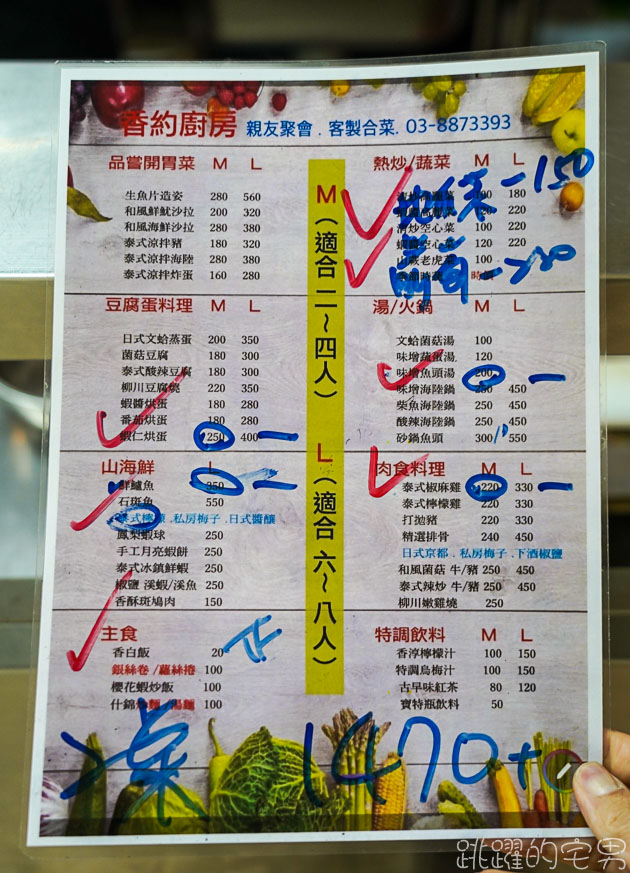 香約廚房 親友聚會 . 客製合菜. 03-8873393
品嘗開胃菜 M L
生魚片造姿 280 560
和風鮮魷沙拉 200 320
和風海鮮沙拉 280 380
泰式涼拌豬 180 320
泰式涼拌海陸 280 380
泰式涼拌炸蛋 160 280
豆腐蛋料理 M L
日式文蛤蒸蛋 200 350
菌菇豆腐 180 300
泰式酸辣豆腐 180 300
柳川豆腐燒 220 350
蝦醬烘蛋 180 280
番茄烘蛋 180 280
蝦仁烘蛋 250 400 一
山海鮮 L
鮮鱸魚 350 一
石斑魚 550
泰式檸檬 .私房梅子 .日式醬釀
鳳梨蝦球 250
手工月亮蝦餅 250
泰式冰鎮鮮蝦 250
椒鹽 溪蝦/溪魚 250
香酥斑鳩肉 150
主食
香白飯 20
銀絲卷/蘿絲捲 100
櫻花蝦炒飯 100
什錦炒麵/湯麵 100
M（適合 二～四人）
L（適合 六～八人）
熱炒/蔬菜 M L
100 180
120 220
清炒空心菜 100 220
蝦醬空心菜 120 220
山蘇老虎菜 100
時價
-150
湯/火鍋 M L
文蛤菌菇湯 100
味增蔬蛋湯 120
味增魚頭湯 200 一
味增海陸鍋 250 450
柴魚海陸鍋 250 450
酸辣海陸鍋 250 450
砂鍋魚頭 300 550
肉食料理 M L
泰式椒麻雞 220 330 一
泰式檸檬雞 220 330
打拋豬 220 330
精選排骨 240 450
日式京都 . 私房梅子 .下酒椒鹽
和風菌菇 牛/豬 250 450
泰式辣炒 牛/豬 250 450
柳川嫩雞燒 250
特調飲料 M L
香淳檸檬汁 100 150
特調烏梅汁 100 150
古早味紅茶 80 120
寶特瓶飲料 50
1470+
跳躍的宅男